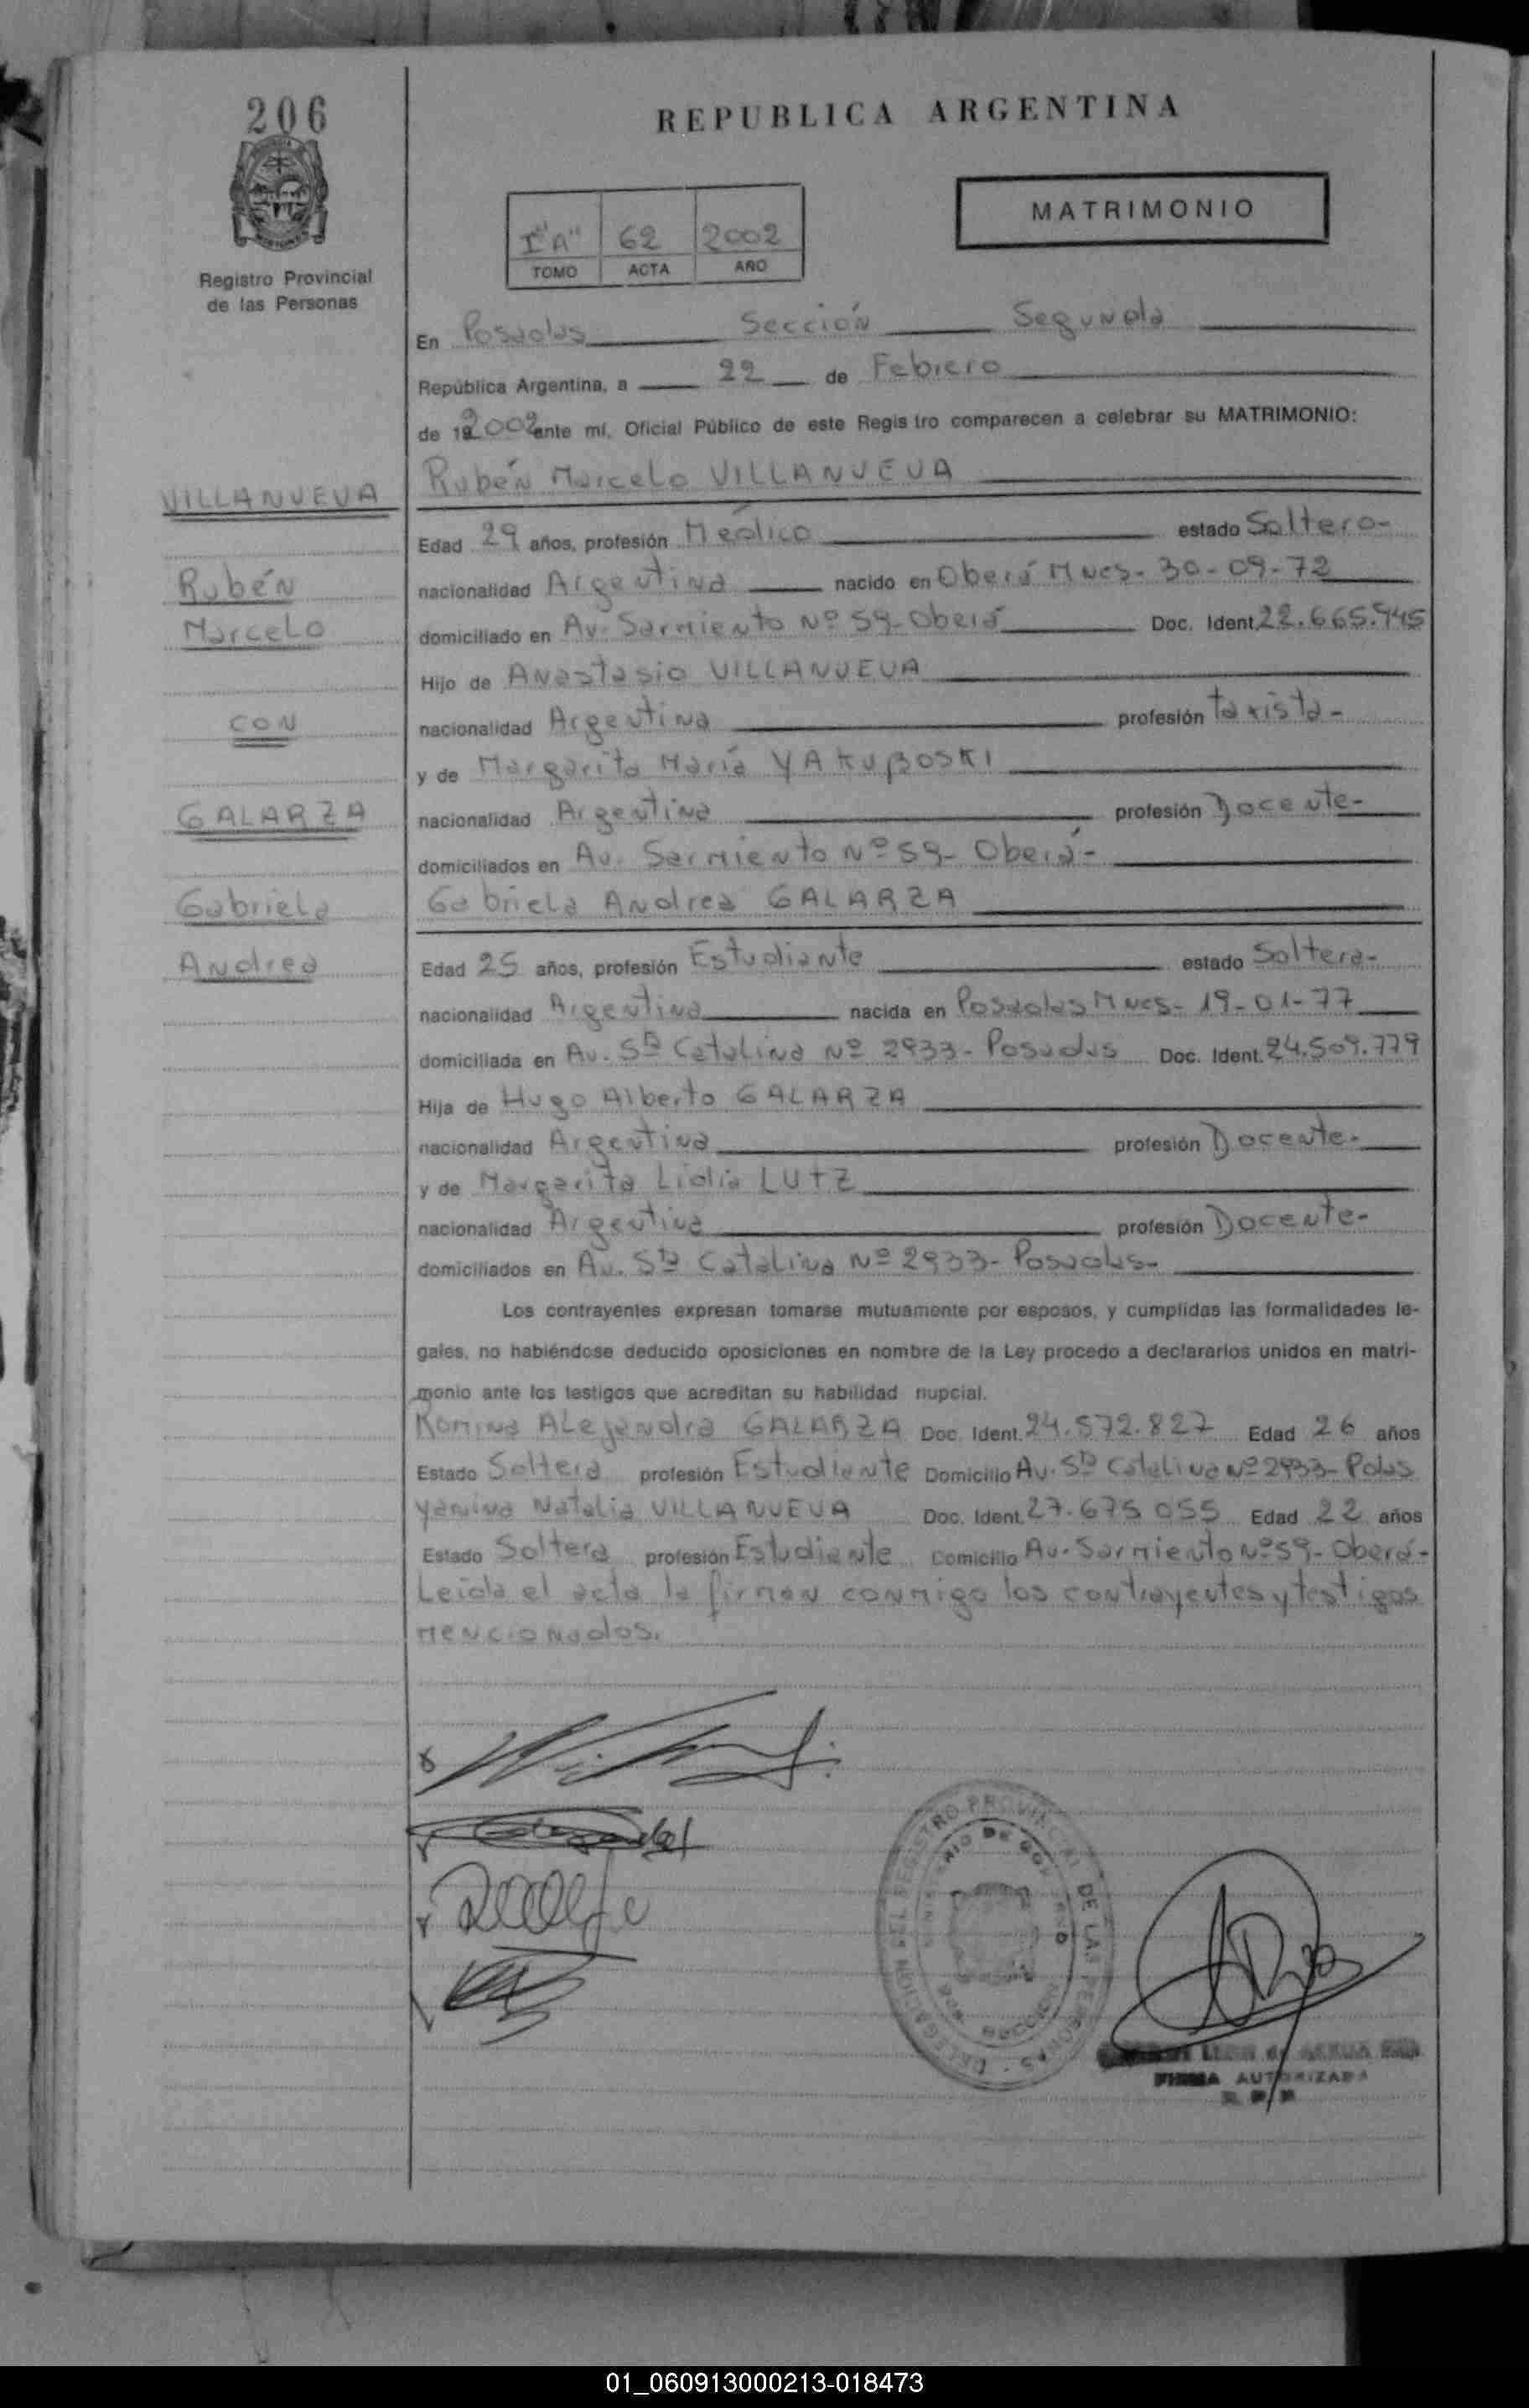 206
REPUBLICA ARGENTINA
MATRIMONIO
I "A" 62 2002
TOMO ACTA AÑO
Registro Provincial
de las Personas
En Posadas Sección Segunda
República Argentina, a 22 de Febrero
de 19 2002 ante mí, Oficial Público de este Registro comparecen a celebrar su MATRIMONIO:
Rubén Marcelo VILLANUEVA
VILLANUEVA
Edad 29 años, profesión Médico estado Soltero-
Rubén
nacionalidad Argentina nacido en Oberá Mnes- 30-09-72
Marcelo
domiciliado en Av. Sarmiento Nº 59- Oberá Doc. Ident. 22.665.945
Hijo de Anastasio VILLANUEVA
CON
nacionalidad Argentina profesión taxista-
y de Margarita María YAKUBOSKI
GALARZA
nacionalidad Argentina profesión Docente-
domiciliados en Av. Sarmiento Nº 59- Oberá-
Gabriela
Gabriela Andrea GALARZA
Andrea
Edad 25 años, profesión Estudiante estado Soltera-
nacionalidad Argentina nacida en Posadas Mnes- 19-01-77
domiciliada en Av. Sta Catalina Nº 2933- Posadas Doc. Ident. 24.509.779
Hija de Hugo Alberto GALARZA
nacionalidad Argentina profesión Docente-
y de Margarita Lidia LUTZ
nacionalidad Argentina profesión Docente-
domiciliados en Av. Sta Catalina Nº 2933- Posadas-
Los contrayentes expresan tomarse mutuamente por esposos, y cumplidas las formalidades le-
gales, no habiéndose deducido oposiciones en nombre de la Ley procedo a declararlos unidos en matri-
monio ante los testigos que acreditan su habilidad nupcial.
Romina Alejandra GALARZA Doc. Ident. 24.572.827 Edad 26 años
Estado Soltera profesión Estudiante Domicilio Av. Sta Catalina Nº 2933- Pdas
Yanina Natalia VILLANUEVA Doc. Ident. 27.675 055 Edad 22 años
Estado Soltera profesión Estudiante Domicilio Av. Sarmiento Nº 59- Oberá-
Leída el acta la firman conmigo los contrayentes y testigos
mencionados.
DELEGACION DEL REGISTRO PROVINCIAL DE LAS PERSONAS
MINISTERIO DE GOBIERNO
SECCION
FIRMA AUTORIZADA
01_060913000213-018473